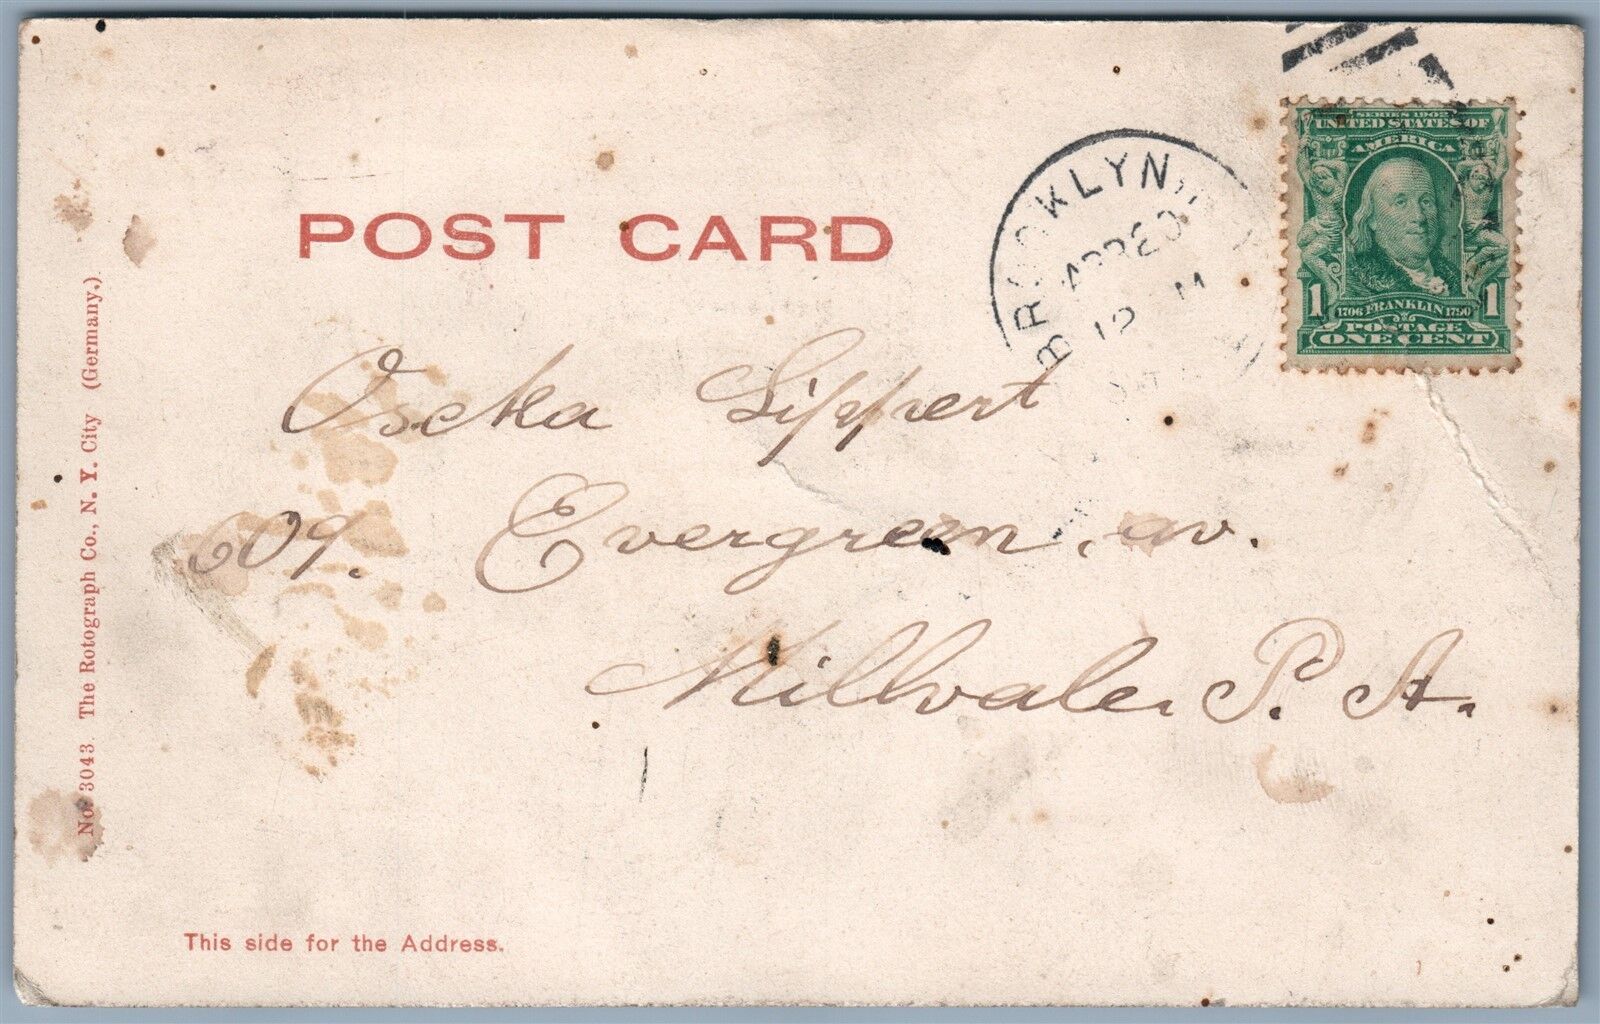 POST CARD
BROOKLYN, N.Y.
APR 20
12 M
SERIES 1902
UNITED STATES OF
AMERICA
1 1706 FRANKLIN 1790 1
POSTAGE
ONE CENT
Lippert
609. Evergreen. av.
Millvale. P. A.
No. 3043 The Rotograph Co., N. Y. City (Germany.)
This side for the Address.